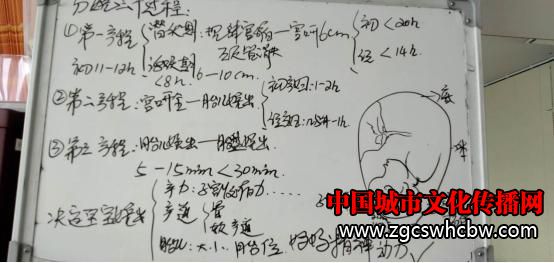 分娩三个过程:
①第一产程 潜伏期: 规律宫缩—宫口6cm 初<20h
宫颈管消 经<14h
初11-12h 活跃期 6-10cm
<8h
②第二产程: 宫口全—胎儿娩出 初产妇:1-2h
经产妇: 1h
③第三产程: 胎儿娩出—胎盘娩出
5-15min <30min
产力: 子宫收缩力......
决定 产道 骨
软产道
胎儿: 大小、胎位 精神动力
底
中国城市文化传播网
www.zgcshcbw.com